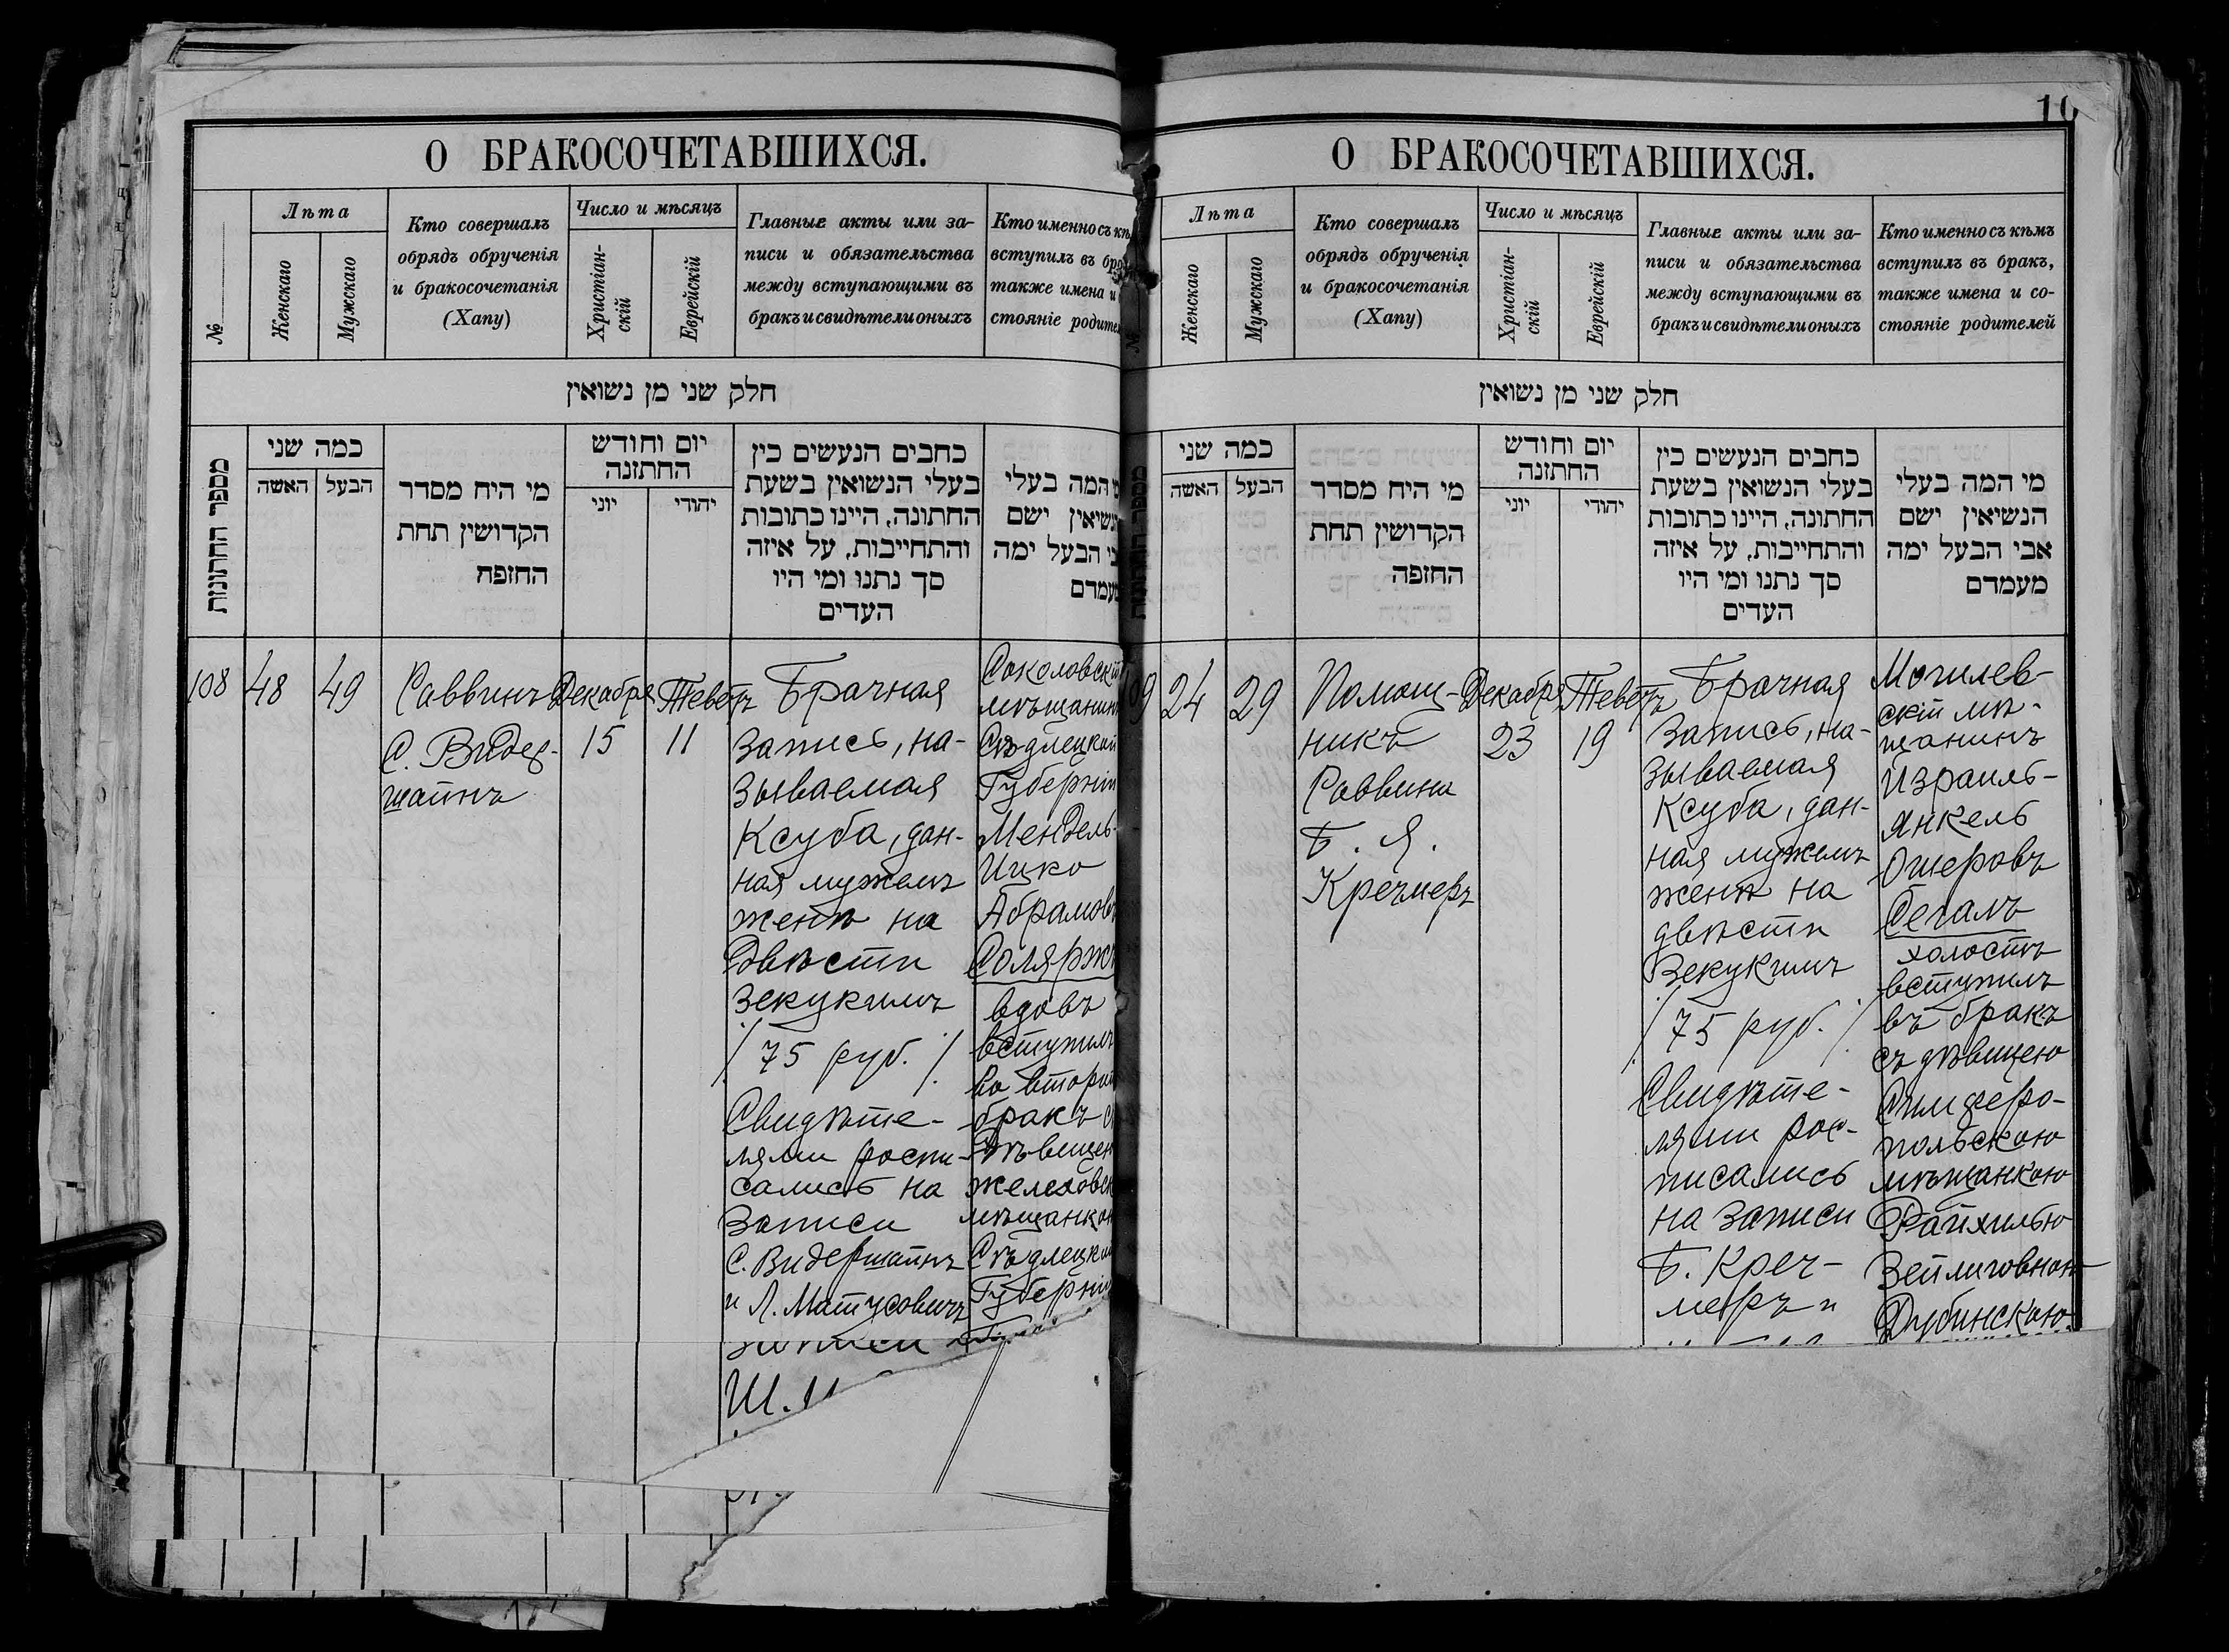 О БРАКОСОЧЕТАВШИХСЯ.
№
Лѣта
Женскаго
Мужскаго
Кто совершалъ
обрядъ обрученія
и бракосочетанія
(Хапу)
Число и мѣсяцъ
Христіан-
скій
Еврейскій
Главные акты или за-
писи и обязательства
между вступающими въ
бракъ и свидѣтели оныхъ
Кто именно съ
вступилъ въ
также имена и
стояніе
חלק שני מן נשואין
מספר החתונות
כמה שני
האשה
הבעל
מי היח מסדר
הקדושין תחת
החזפח
יום וחודש
החתזנה
יוני
יהודי
כחבים הנעשים כין
בעלי הנשואין בשעת
החתונה, היינו כתובות
והתחייבות, על איזה
סך נתנו ומי היו
העדים
המה בעלי
ישם
הבעל ימה
108
48
49
Раввинъ
С. Видер-
шайнъ
Декабря
15
Теветъ
11
Брачная
запись, на-
зываемая
Ксуба, дан-
ная мужемъ
женѣ на
двѣсти
зекукимъ
/ 75 руб. /
Свидѣте-
лями роспи-
сались на
записи
С. Видершайнъ
и Л. Матусовичъ
мѣщанинъ
Мендель-
Ицко
вдовъ
вступилъ
во
бракъ
О БРАКОСОЧЕТАВШИХСЯ.
Лѣта
Женскаго
Мужскаго
Кто совершалъ
обрядъ обрученія
и бракосочетанія
(Хапу)
Число и мѣсяцъ
Христіан-
скій
Еврейскій
Главные акты или за-
писи и обязательства
между вступающими въ
бракъ и свидѣтели оныхъ
Кто именно съ кѣмъ
вступилъ въ бракъ,
также имена и со-
стояніе родителей
חלק שני מן נשואין
כמה שני
האשה
הבעל
מי היח מסדר
הקדושין תחת
החזפה
יום וחודש
החתזנה
יוני
יהודי
כחבים הנעשים כין
בעלי הנשואין בשעת
החתונה, היינו כתובות
והתחייבות, על איזה
סך נתנו ומי היו
העדים
מי המה בעלי
הנשיאין ישם
אבי הבעל ימה
מעמדם
24
29
Помощ-
никъ
Раввина
Б. Я.
Кречмеръ
Декабря
23
Теветъ
19
Брачная
запись, на-
зываемая
Ксуба, дан-
ная мужемъ
женѣ на
двѣсти
Зекукимъ
/ 75 руб. /
Свидѣте-
лями рос-
писались
на записи
Б. Креч-
меръ и
Могилев-
скій мѣ-
щанинъ
Израиль-
Янкель
Ошеровъ
Сегалъ
холостъ
вступилъ
въ бракъ
съ дѣвицею
Симферо-
польскою
мѣщанкою
Райхилью
Зейлиговною
Дубинскою